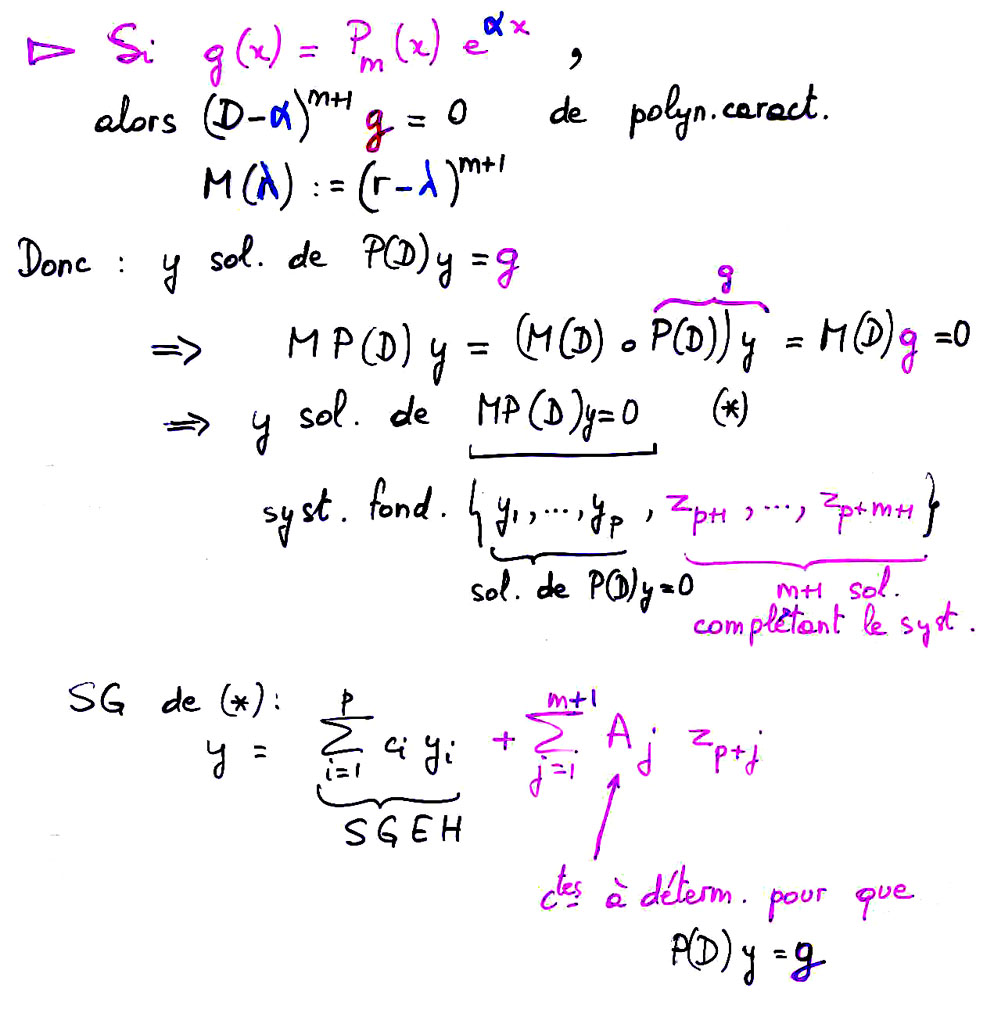 ▷ Si g(x) = P_m(x) e^{αx} ,
alors (D-α)^{m+1} g = 0 de polyn. caract.
M(λ) := (r-λ)^{m+1}
Donc : y sol. de P(D)y = g
g
=> MP(D) y = (M(D) ∘ P(D)) y = M(D) g = 0
=> y sol. de MP(D)y=0 (*)
syst. fond. { y_1, ..., y_p , z_{p+1} , ..., z_{p+m+1} }
sol. de P(D)y=0 m+1 sol.
complétant le syst.
SG de (*):
y = \sum_{i=1}^{p} c_i y_i + \sum_{j=1}^{m+1} A_j z_{p+j}
SGEH
c^{tes} à déterm. pour que
P(D) y = g